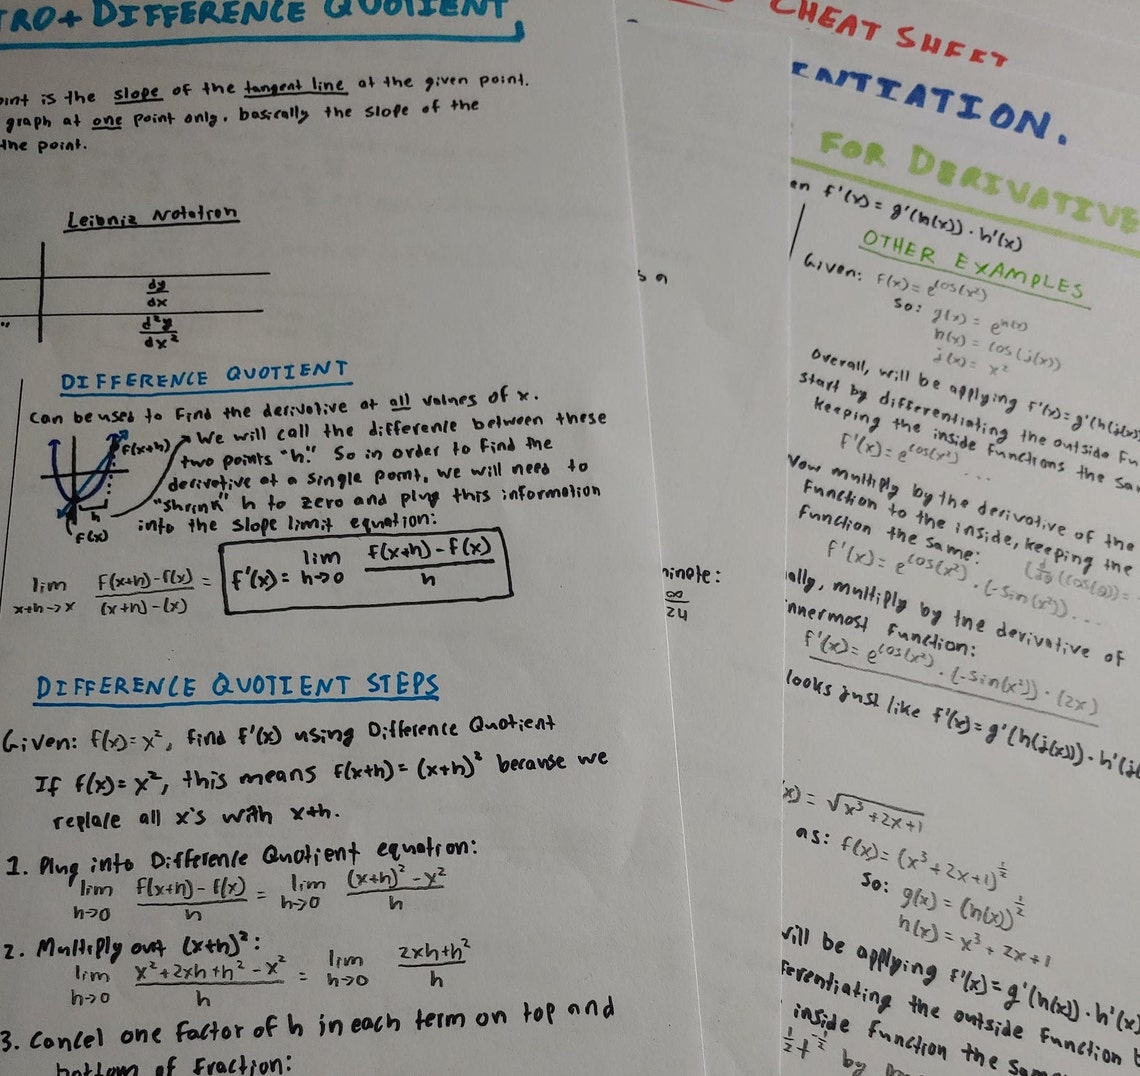 TRO + DIFFERENCE QUOTIENT
oint is the slope of the tangent line at the given point.
graph at one point only. basically the slope of the
the point.
Leibniz Notation
dy
dx
d²y
dx²
DIFFERENCE QUOTIENT
Can be used to find the derivative at all values of x.
f(x+h)
We will call the difference between these
two points "h." So in order to find the
derivative at a single point, we will need to
"shrink" h to zero and plug this information
into the slope limit equation:
h
f(x)
lim x+h→x f(x+h)-f(x) / (x+h)-(x) = f'(x) = lim h→0 f(x+h)-f(x) / h
DIFFERENCE QUOTIENT STEPS
Given: f(x)=x², find f'(x) using Difference Quotient
If f(x)=x², this means f(x+h)=(x+h)² because we
replace all x's with x+h.
1. Plug into Difference Quotient equation:
lim h→0 f(x+h)-f(x) / h = lim h→0 (x+h)²-x² / h
2. Multiply out (x+h)²:
lim h→0 x²+2xh+h²-x² / h = lim h→0 2xh+h² / h
3. Cancel one factor of h in each term on top and
bottom of fraction:
s a
minate:
∞
24
CHEAT SHEET
ENTIATION.
FOR DERIVATIVE
en f'(x) = g'(h(x)) · h'(x)
OTHER EXAMPLES
Given: f(x) = e^cos(x²)
So: g(x) = e^h(x)
h(x) = cos(j(x))
j(x) = x²
Overall, will be applying f'(x)=g'(h(j(x)
start by differentiating the outside fu
keeping the inside functions the sa
f'(x) = e^cos(x²) ...
Now multiply by the derivative of the
function to the inside, keeping the
function the same:
f'(x) = e^cos(x²) · (-sin(x²)) ...
ally, multiply by the derivative of
innermost function:
f'(x) = e^cos(x²) · (-sin(x²)) · (2x)
looks just like f'(x)=g'(h(j(x)) · h'(j(
(x) = √x³+2x+1
as: f(x) = (x³+2x+1)^½
So: g(x) = (h(x))^½
h(x) = x³+2x+1
will be applying f'(x)=g'(h(x)) · h'(x)
ferentiating the outside function
inside function the same